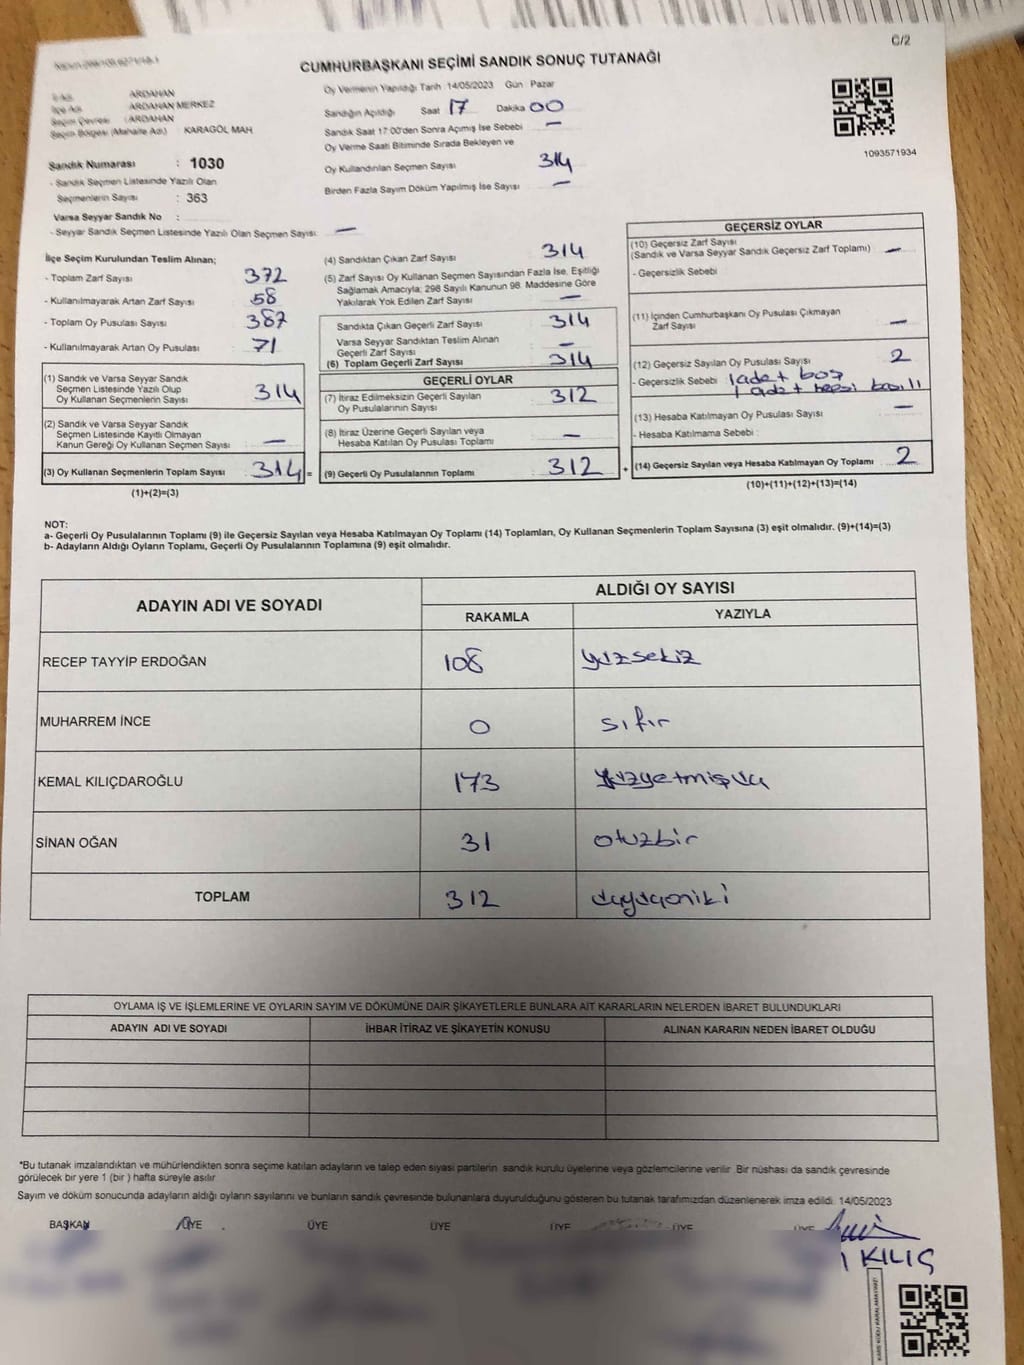 C/2
CUMHURBAŞKANI SEÇİMİ SANDIK SONUÇ TUTANAĞI
İlçe Adı
Seçim Çevresi
Seçim Bölgesi (Mahalle Adı)
ARDAHAN
ARDAHAN MERKEZ
: ARDAHAN
: KARAGÖL MAH
Sandık Numarası : 1030
- Sandık Seçmen Listesinde Yazılı Olan
Seçmenlerin Sayısı : 363
Varsa Seyyar Sandık No :
- Seyyar Sandık Seçmen Listesinde Yazılı Olan Seçmen Sayısı: —
Oy Vermenin Yapıldığı Tarih :14/05/2023 Gün Pazar
Sandığın Açıldığı Saat 17 Dakika 00
Sandık Saat 17:00'den Sonra Açımış İse Sebebi —
Oy Verme Saati Bitiminde Sırada Bekleyen ve
Oy Kullandırılan Seçmen Sayısı 314
Birden Fazla Sayım Döküm Yapılmış İse Sayısı —
1093571934
İlçe Seçim Kurulundan Teslim Alınan;
- Toplam Zarf Sayısı 372
- Kullanılmayarak Artan Zarf Sayısı 58
- Toplam Oy Pusulası Sayısı 387
- Kullanılmayarak Artan Oy Pusulası 71
(1) Sandık ve Varsa Seyyar Sandık
Seçmen Listesinde Yazılı Olup
Oy Kullanan Seçmenlerin Sayısı 314
(2) Sandık ve Varsa Seyyar Sandık
Seçmen Listesinde Kayıtlı Olmayan
Kanun Gereği Oy Kullanan Seçmen Sayısı —
(3) Oy Kullanan Seçmenlerin Toplam Sayısı 314 =
(1)+(2)=(3)
(4) Sandıktan Çıkan Zarf Sayısı 314
(5) Zarf Sayısı Oy Kullanan Seçmen Sayısından Fazla İse, Eşitliği
Sağlamak Amacıyla; 298 Sayılı Kanunun 98. Maddesine Göre
Yakılarak Yok Edilen Zarf Sayısı —
Sandıkta Çıkan Geçerli Zarf Sayısı 314
Varsa Seyyar Sandıktan Teslim Alınan
Geçerli Zarf Sayısı —
(6) Toplam Geçerli Zarf Sayısı 314
GEÇERLİ OYLAR
(7) İtiraz Edilmeksizin Geçerli Sayılan
Oy Pusulalarının Sayısı 312
(8) İtiraz Üzerine Geçerli Sayılan veya
Hesaba Katılan Oy Pusulaları Toplamı —
(9) Geçerli Oy Pusulalarının Toplamı 312 +
GEÇERSİZ OYLAR
(10) Geçersiz Zarf Sayısı
(Sandık ve Varsa Seyyar Sandık Geçersiz Zarf Toplamı) —
- Geçersizlik Sebebi
(11) İçinden Cumhurbaşkanı Oy Pusulası Çıkmayan
Zarf Sayısı —
(12) Geçersiz Sayılan Oy Pusulası Sayısı 2
- Geçersizlik Sebebi : 1 adet boş
1 adet hepsi basılı
(13) Hesaba Katılmayan Oy Pusulası Sayısı —
- Hesaba Katılmama Sebebi :
(14) Geçersiz Sayılan veya Hesaba Katılmayan Oy Toplamı 2
(10)+(11)+(12)+(13)=(14)
NOT:
a- Geçerli Oy Pusulalarının Toplamı (9) ile Geçersiz Sayılan veya Hesaba Katılmayan Oy Toplamı (14) Toplamları, Oy Kullanan Seçmenlerin Toplam Sayısına (3) eşit olmalıdır. (9)+(14)=(3)
b- Adayların Aldığı Oyların Toplamı, Geçerli Oy Pusulalarının Toplamına (9) eşit olmalıdır.
ADAYIN ADI VE SOYADI
ALDIĞI OY SAYISI
RAKAMLA YAZIYLA
RECEP TAYYİP ERDOĞAN 108 yüzsekiz
MUHARREM İNCE 0 sıfır
KEMAL KILIÇDAROĞLU 173 yüzyetmişüç
SİNAN OĞAN 31 otuzbir
TOPLAM 312 üçyüzoniki
OYLAMA İŞ VE İŞLEMLERİNE VE OYLARIN SAYIM VE DÖKÜMÜNE DAİR ŞİKAYETLERLE BUNLARA AİT KARARLARIN NELERDEN İBARET BULUNDUKLARI
ADAYIN ADI VE SOYADI İHBAR İTİRAZ VE ŞİKAYETİN KONUSU ALINAN KARARIN NEDEN İBARET OLDUĞU
*Bu tutanak imzalandıktan ve mühürlendikten sonra seçime katılan adayların ve talep eden siyasi partilerin sandık kurulu üyelerine veya gözlemcilerine verilir. Bir nüshası da sandık çevresinde
görülecek bir yere 1 (bir) hafta süreyle asılır
Sayım ve döküm sonucunda adayların aldığı oyların sayılarını ve bunların sandık çevresinde bulunanlara duyurulduğunu gösteren bu tutanak tarafımızdan düzenlenerek imza edildi. 14/05/2023
BAŞKAN ÜYE ÜYE ÜYE ÜYE ÜYE ÜYE
KILIÇ